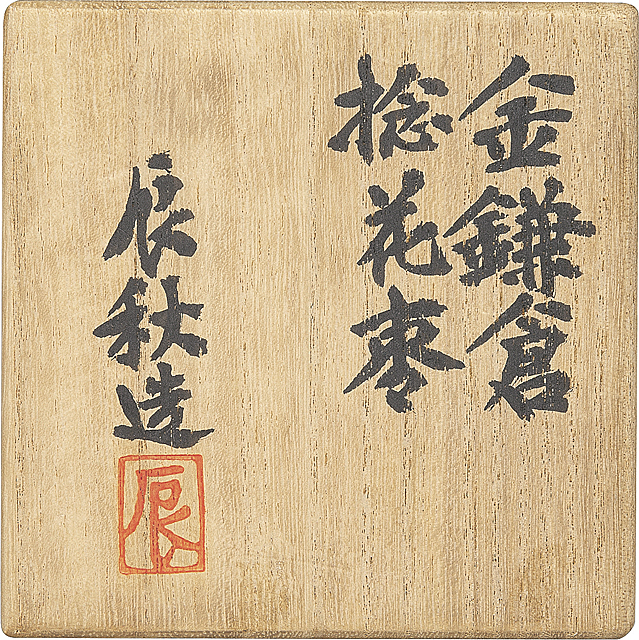 金鎌倉
捻花棗
辰秋造
辰